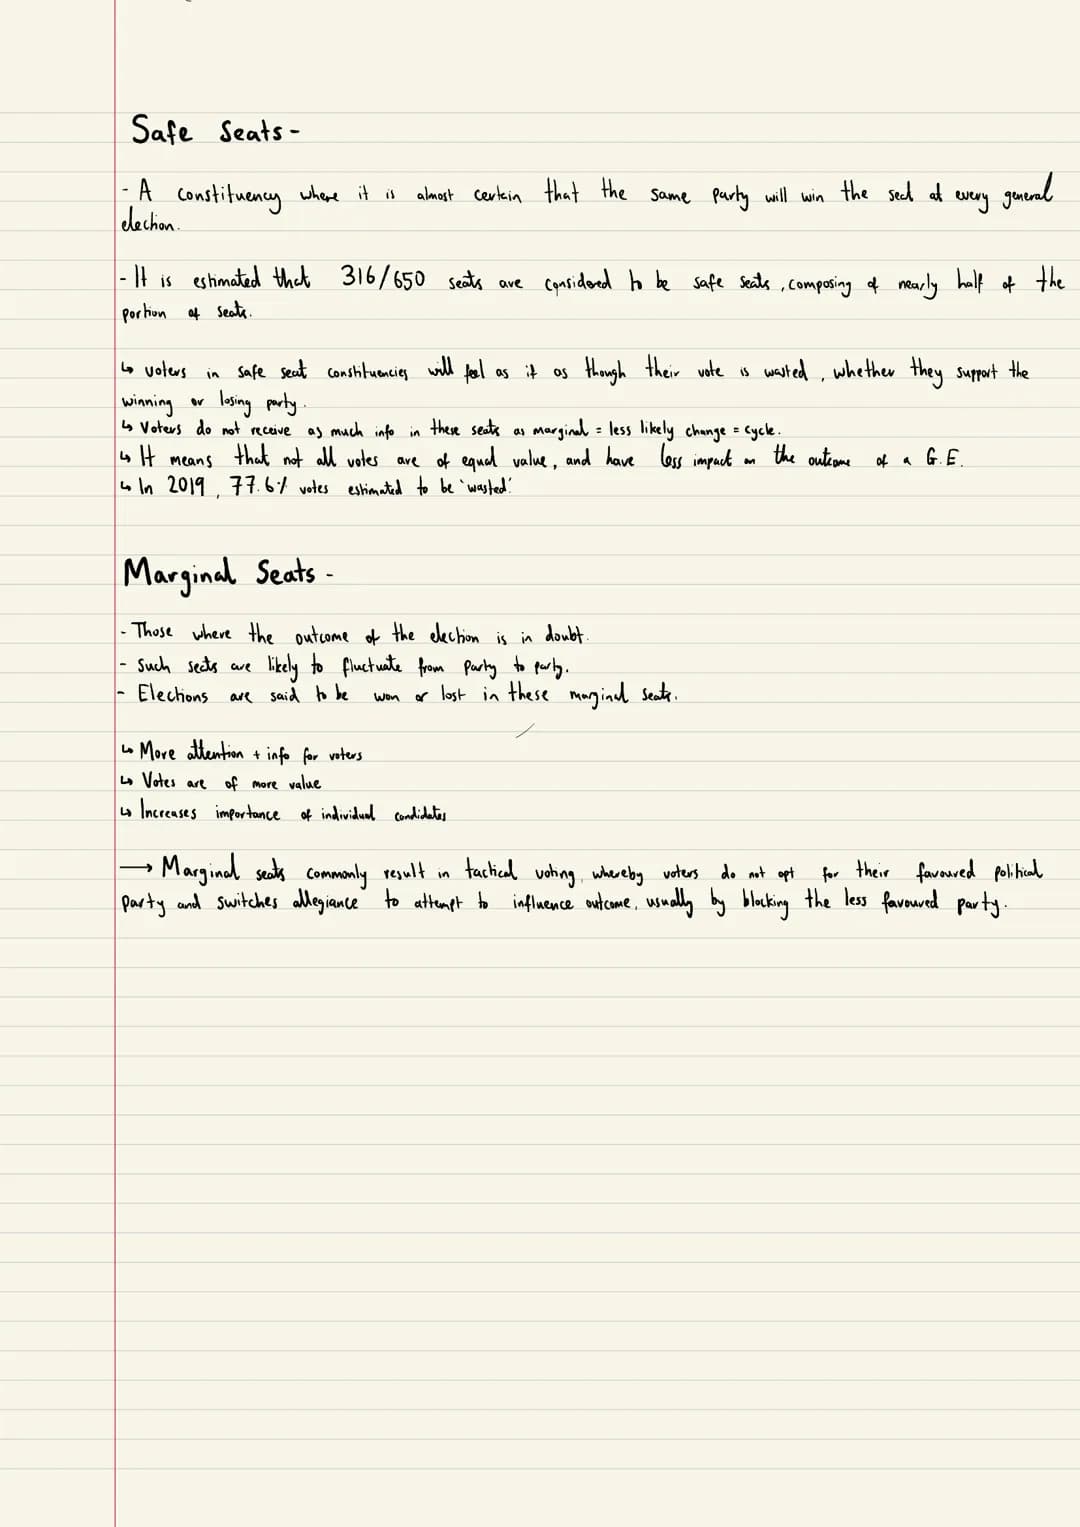 Safe Seats -
- A constituency where it is almost certain that the same party will win the seat at every general
election.
- It is estimated that 316/650 seats are considered to be safe seats, composing of nearly half of the
portion of seats.
↳ voters in safe seat constituencies will feel as if as though their vote is wasted, whether they support the
winning or losing party.
↳ Voters do not receive as much info in these seats as marginal = less likely change = cycle.
↳ It means that not all votes are of equal value, and have less impact on the outcome of a G.E.
↳ In 2019, 77.6% votes estimated to be 'wasted'.
Marginal Seats -
- Those where the outcome of the election is in doubt.
- Such seats are likely to fluctuate from party to party.
- Elections are said to be won or lost in these marginal seats.
↳ More attention + info for voters
↳ Votes are of more value
↳ Increases importance of individual candidates
→ Marginal seats commonly result in tactical voting, whereby voters do not opt for their favoured political
party and switches allegiance to attempt to influence outcome, usually by blocking the less favoured party.